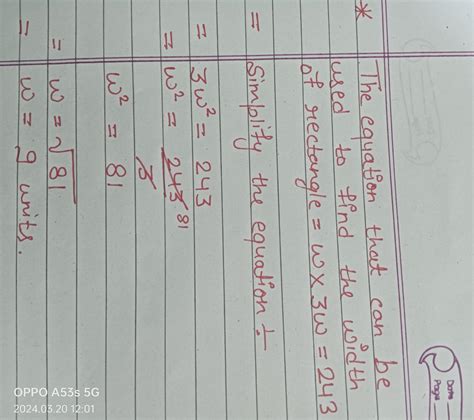 Date
Page
* The equation that can be
used to find the width
of rectangle = w × 3w = 243
= Simplify the equation ÷
= 3w² = 243
= w² = 243 81
3
w² = 81
= w = √81
= w = 9 units.
OPPO A53s 5G
2024.03.20 12:01